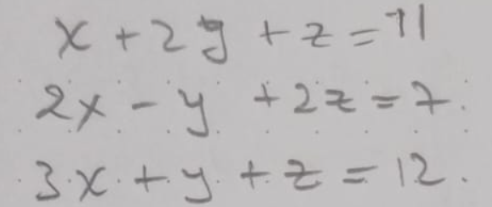 x + 2y + z = 11
2x - y + 2z = 7
3x + y + z = 12